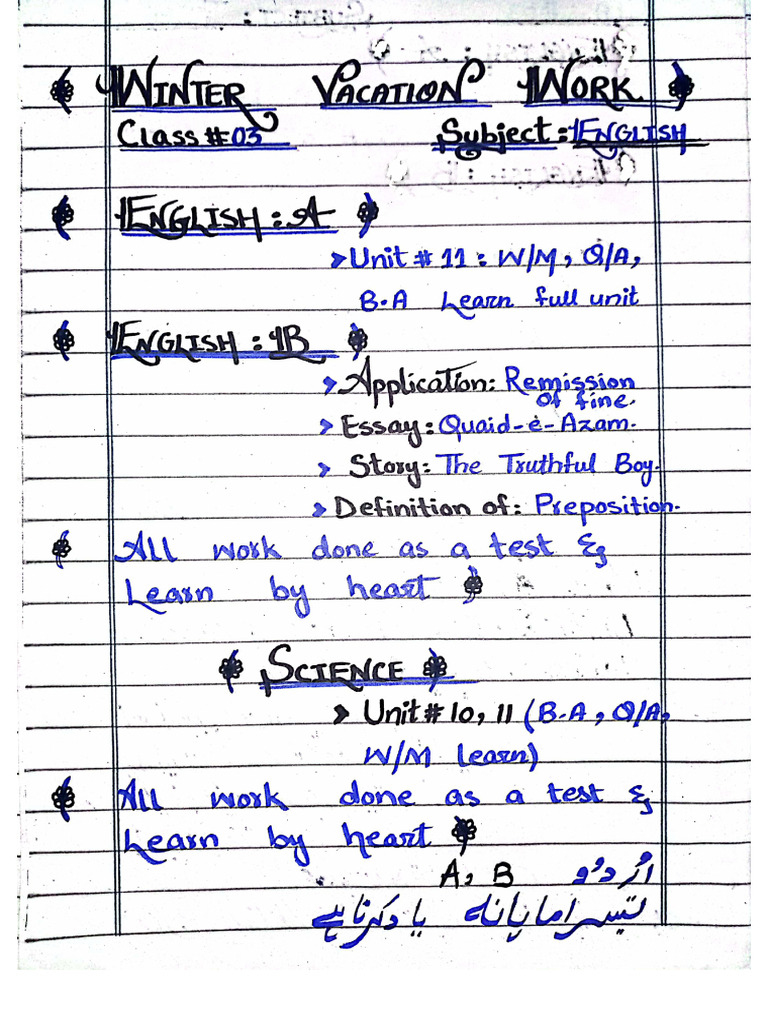 Winter Vacation Work
Class # 03 Subject: English
English: A
Unit # 11: W/M, Q/A,
B.A Learn full unit
English: B
Application: Remission
of fine.
Essay: Quaid-e-Azam.
Story: The Truthful Boy.
Definition of: Preposition.
All work done as a test &
Learn by heart
Science
Unit # 10, 11 (B.A, Q/A,
W/M learn)
All work done as a test &
Learn by heart
اُردُو A, B
تیسرا ماہانہ یاد کرنا ہے